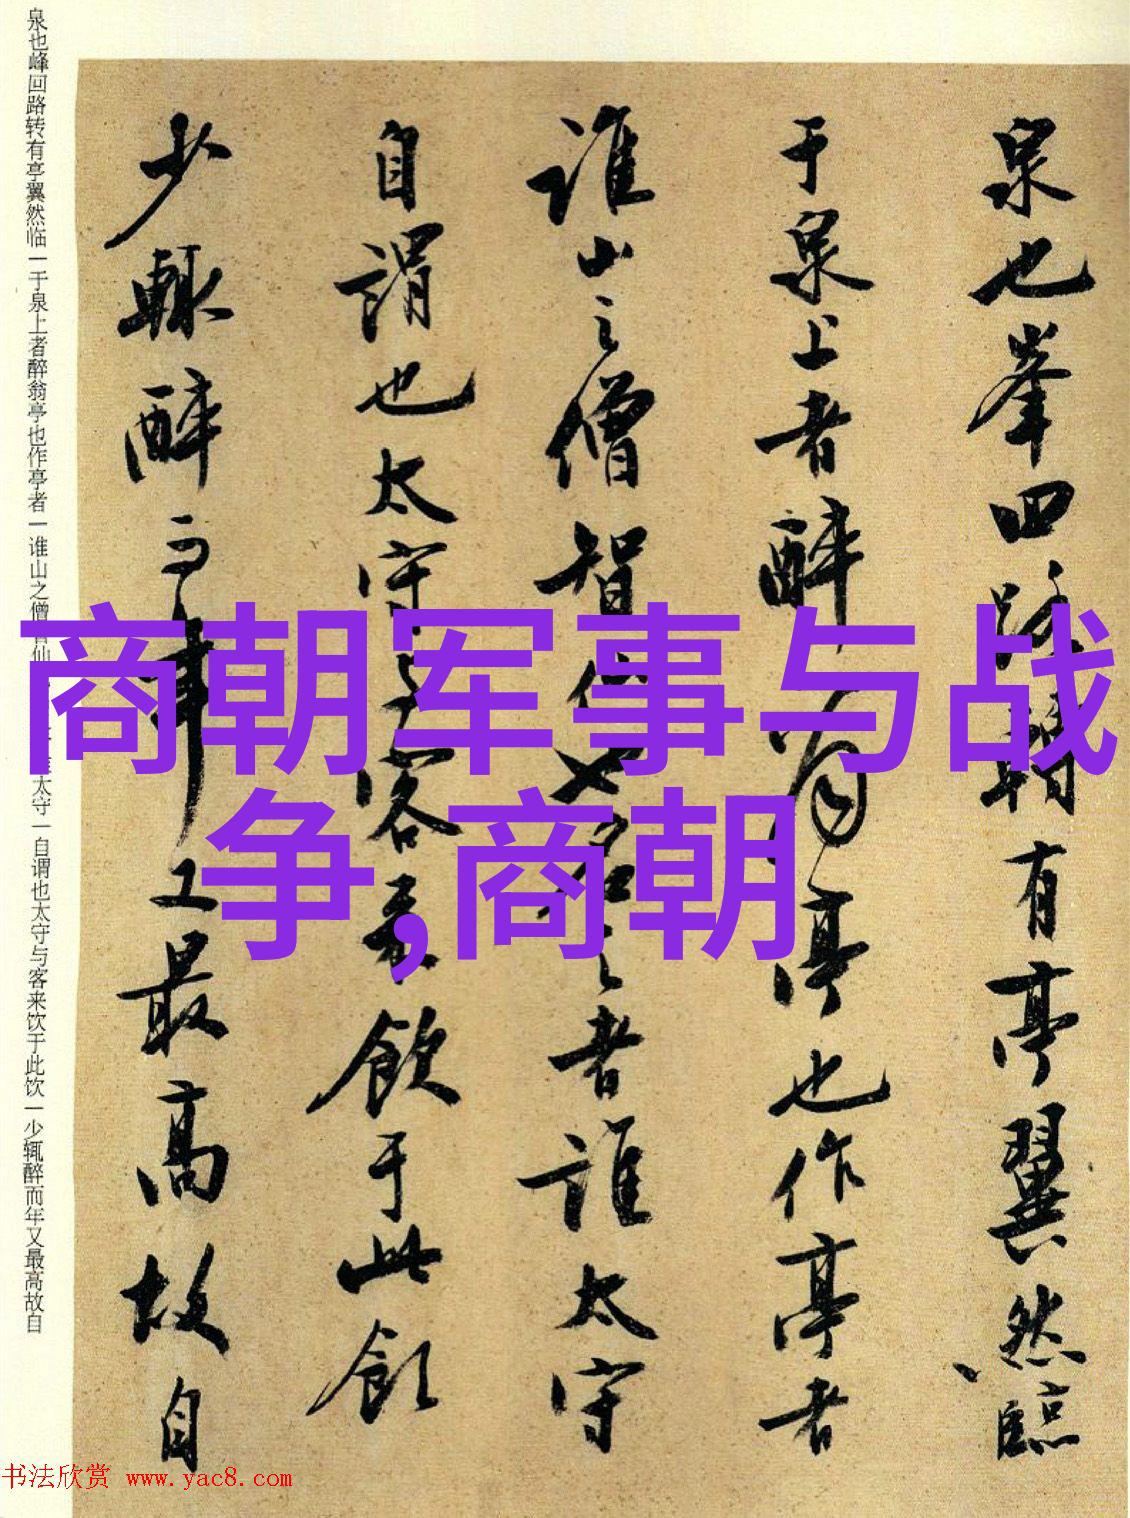 泉也峯回路轉有亭翼然臨
于泉上者醉翁亭也作亭者
誰山之僧智仙也名之者誰太守
自謂也太守與客來飲于此飲
少輒醉而年又最高故自
泉也峰回路转有亭翼然临一于泉上者醉翁亭也作亭者一谁山之僧智仙太守一自谓也太守与客来饮于此饮一少辄醉而年又最高故自
商朝军事与战
争,商朝
书法欣赏 www.yac8.com